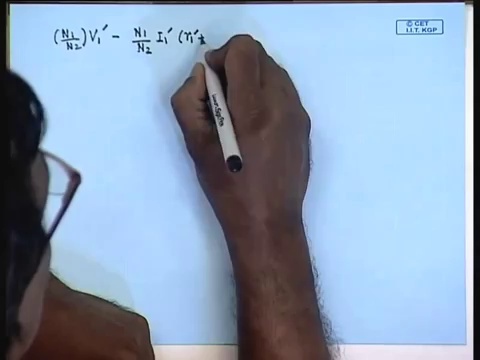 (N₁/N₂) V₁′ − N₁/N₂ I₁′ (r₁′
© CET
I.I.T. KGP